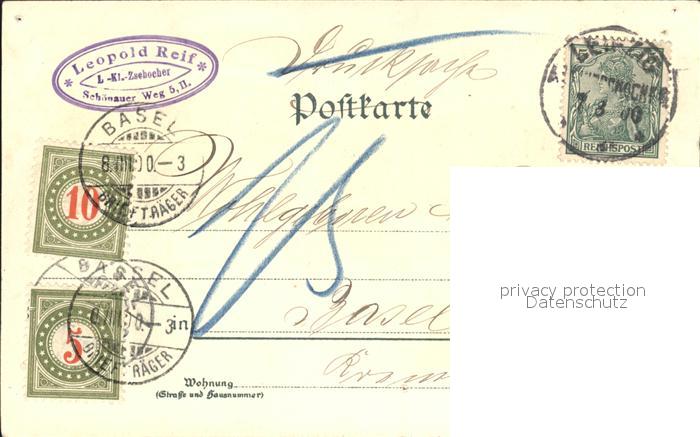 Leopold Reif
L.-Kl.-Zschocher
Schönauer Weg 5, II.
Drucksache
Postkarte
LEIPZIG
7 3 00
REICHSPOST
BASEL
8.III.00.–3
BRIEFTRÄGER
10
15
BASEL
BRIEFTRÄGER
5
in
Basel
privacy protection
Datenschutz
Wohnung
(Straße und Hausnummer)